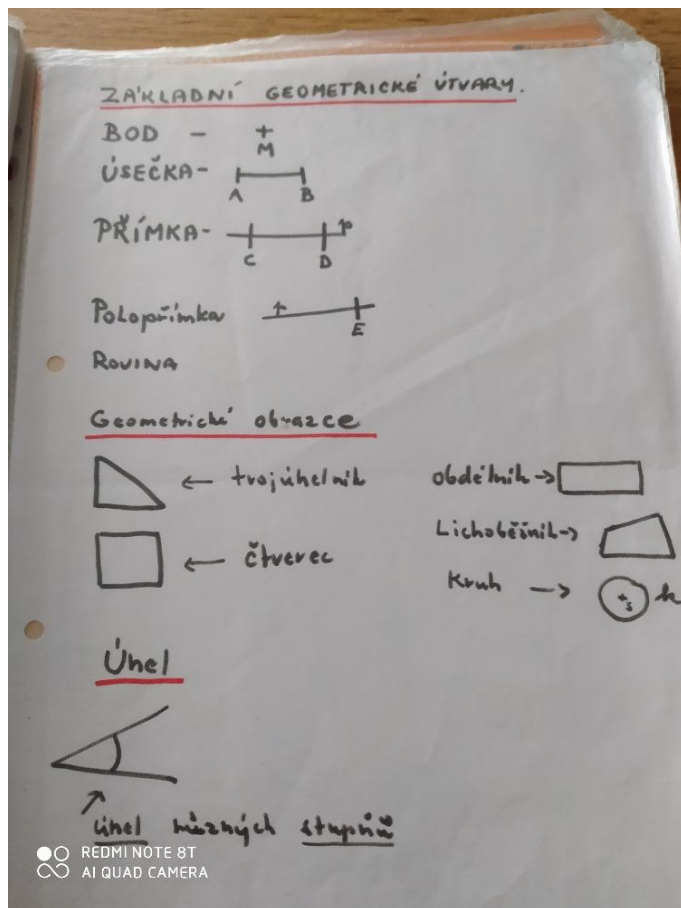 ZÁKLADNÍ GEOMETRICKÉ ÚTVARY.
BOD - +
M
ÚSEČKA-
A B
PŘÍMKA- p
C D
Polopřímka
E
ROVINA
Geometrické obrazce
← trojúhelník
obdélník →
Lichoběžník →
← čtverec
Kruh → +s k
Úhel
úhel různých stupňů
REDMI NOTE 8T
AI QUAD CAMERA